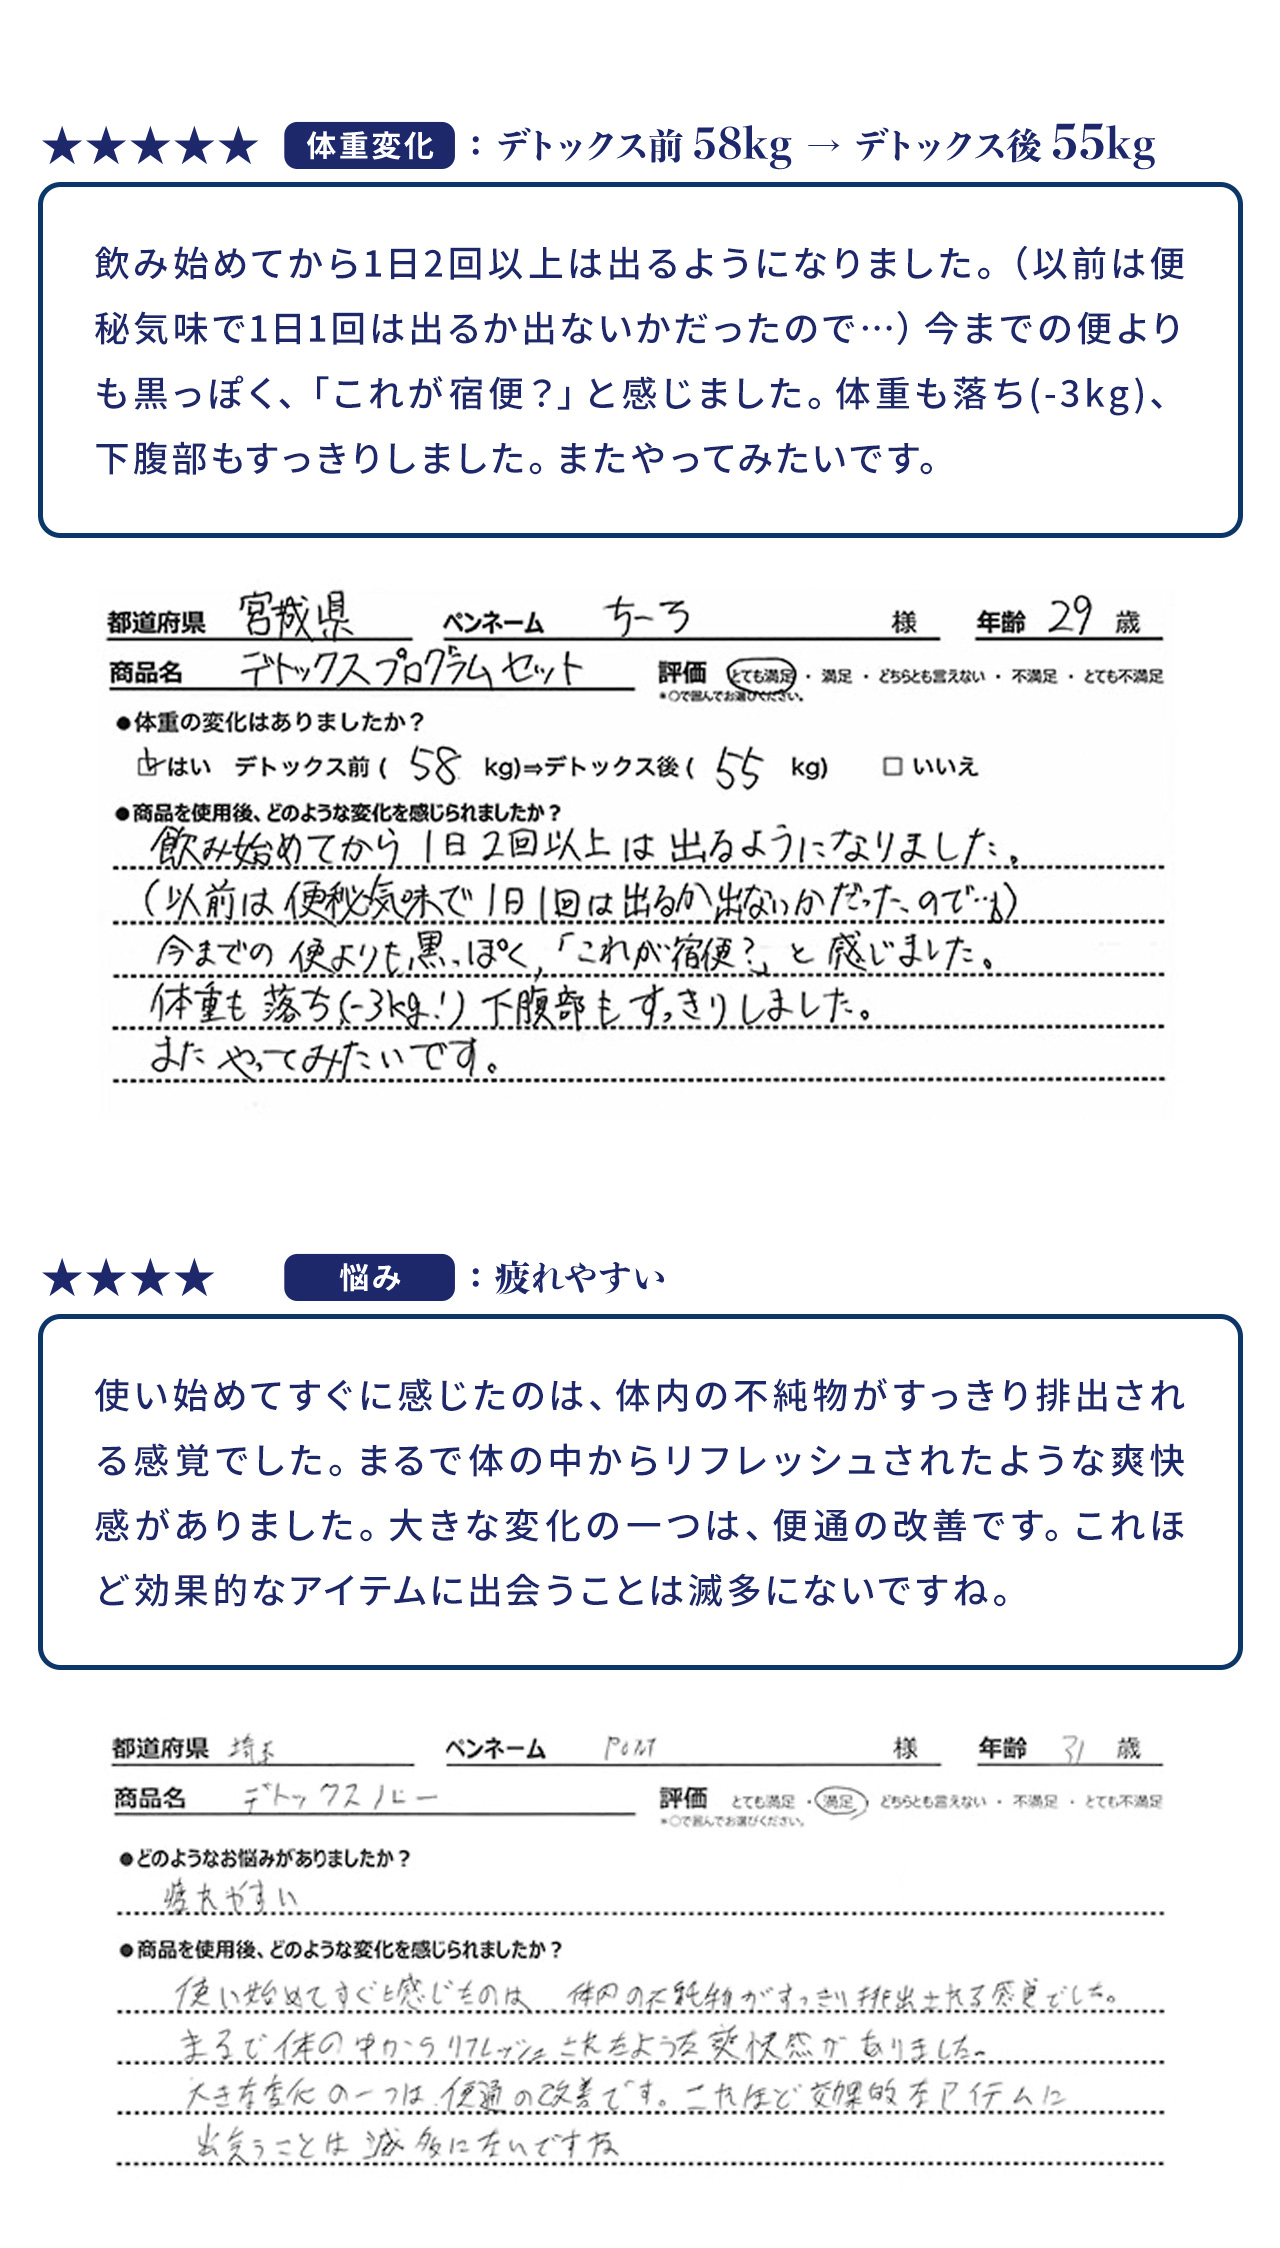 ★★★★★ 体重変化 : デトックス前 58kg → デトックス後 55kg
飲み始めてから1日2回以上は出るようになりました。（以前は便
秘気味で1日1回は出るか出ないかだったので…）今までの便より
も黒っぽく、「これが宿便？」と感じました。体重も落ち(-3kg)、
下腹部もすっきりしました。またやってみたいです。
都道府県 宮城県 ペンネーム ちーろ 様 年齢 29 歳
商品名 デトックスプログラムセット 評価 とても満足 ・ 満足 ・ どちらとも言えない ・ 不満足 ・ とても不満足
*○で囲んでお選びください。
●体重の変化はありましたか？
はい デトックス前 ( 58 kg)⇒デトックス後 ( 55 kg) □ いいえ
●商品を使用後、どのような変化を感じられましたか？
飲み始めてから1日2回以上は出るようになりました。
(以前は便秘気味で1日1回は出るか出ないかだったので…)
今までの便よりも黒っぽく,「これが宿便?」と感じました。
体重も落ち(-3kg!) 下腹部もすっきりしました。
またやってみたいです。
★★★★ 悩み : 疲れやすい
使い始めてすぐに感じたのは、体内の不純物がすっきり排出され
る感覚でした。まるで体の中からリフレッシュされたような爽快
感がありました。大きな変化の一つは、便通の改善です。これほ
ど効果的なアイテムに出会うことは滅多にないですね。
都道府県 埼玉 ペンネーム 様 年齢 31 歳
商品名 デトックスバー 評価 とても満足 ・ 満足 ・ どちらとも言えない ・ 不満足 ・ とても不満足
*○で囲んでお選びください。
●どのようなお悩みがありましたか？
疲れやすい
●商品を使用後、どのような変化を感じられましたか？
使い始めてすぐに感じたのは、体内の不純物がすっきり排出される感覚でした。
まるで体の中からリフレッシュされたような爽快感がありました。
大きな変化の一つは、便通の改善です。これほど効果的なアイテムに
出会うことは滅多にないですね